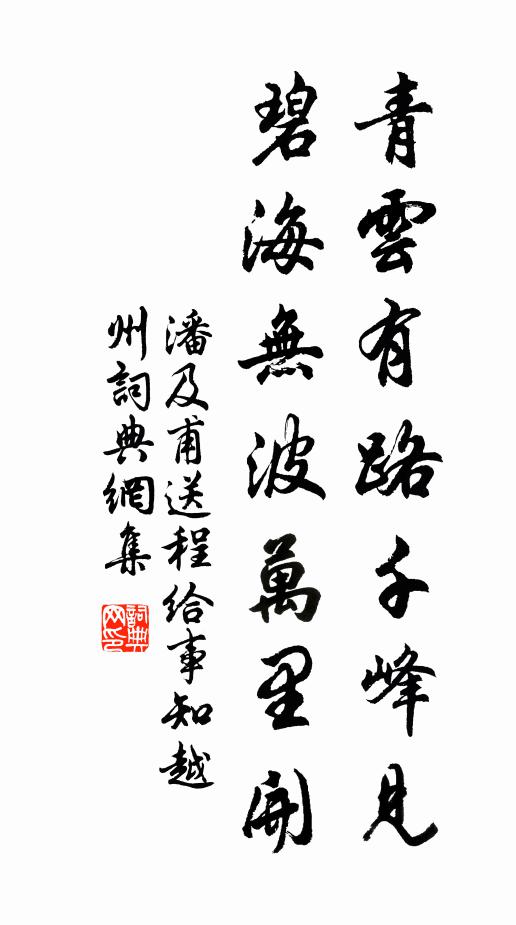 青雲有路千峰見
碧海無波萬里開
潘及甫送程給事知越
州詞典網集
詞典網印